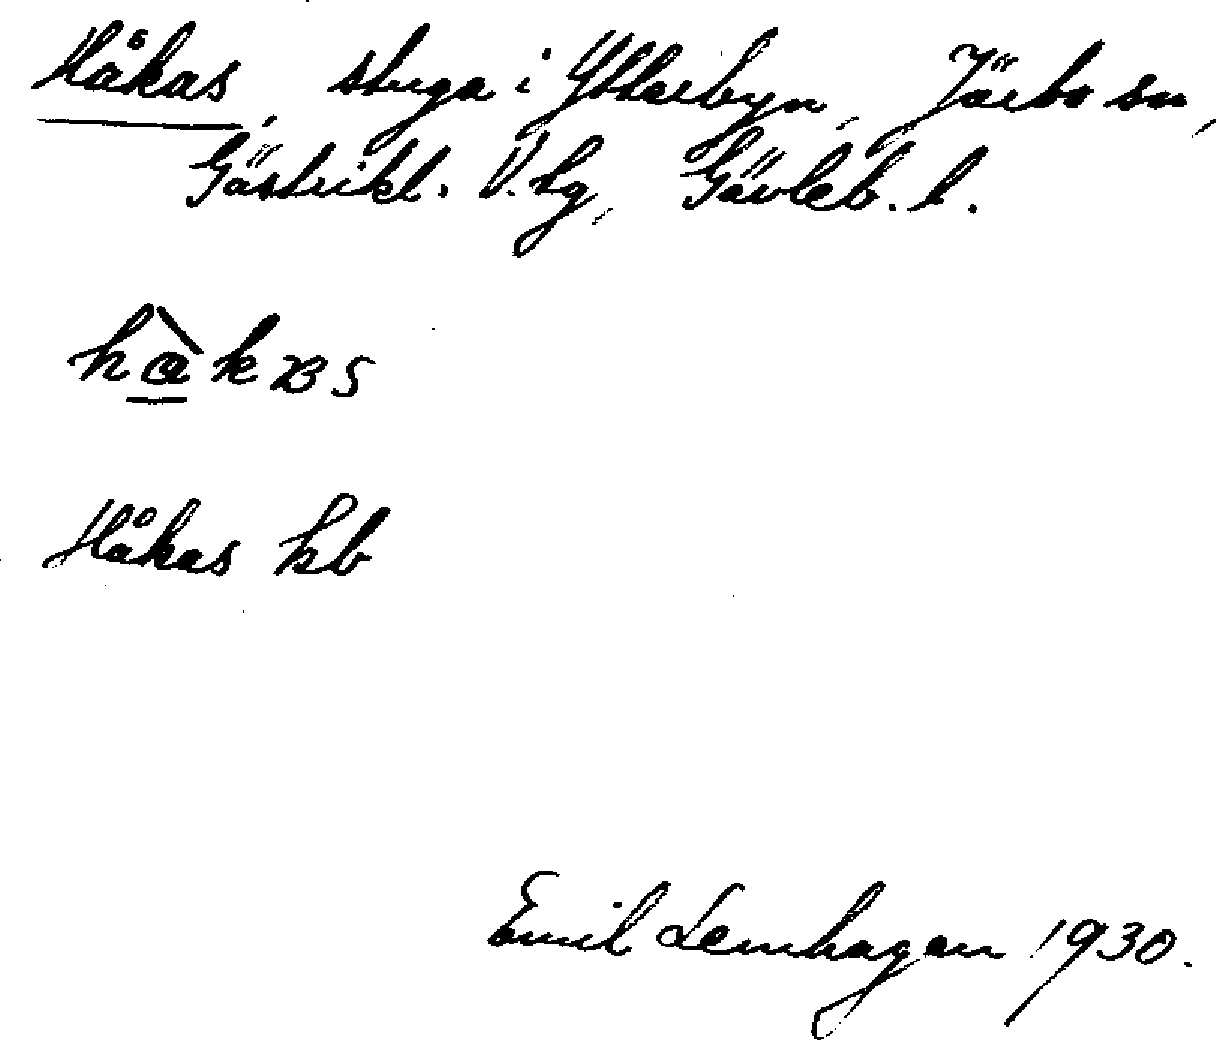 Håkas, stuga i Ytterbyn, Järbo sn,
Gästrikl. V. tg, Gävleb. l.
Håkas kb
Emil Lernhagen 1930.